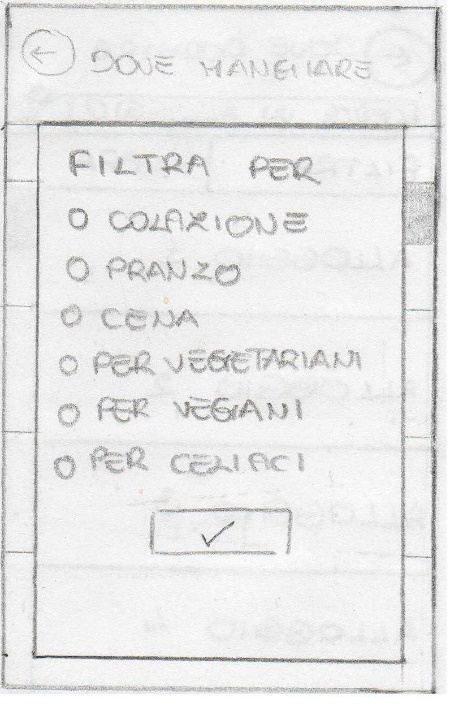 DOVE MANGIARE
FILTRA PER
COLAZIONE
PRANZO
CENA
PER VEGETARIANI
PER VEGANI
PER CELIACI